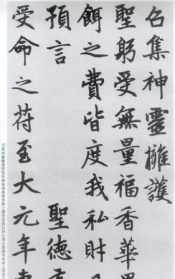 召集神靈擁護
聖躬受無量福香華
餌之費皆度我私財
預言　聖德
受命之符至大元年